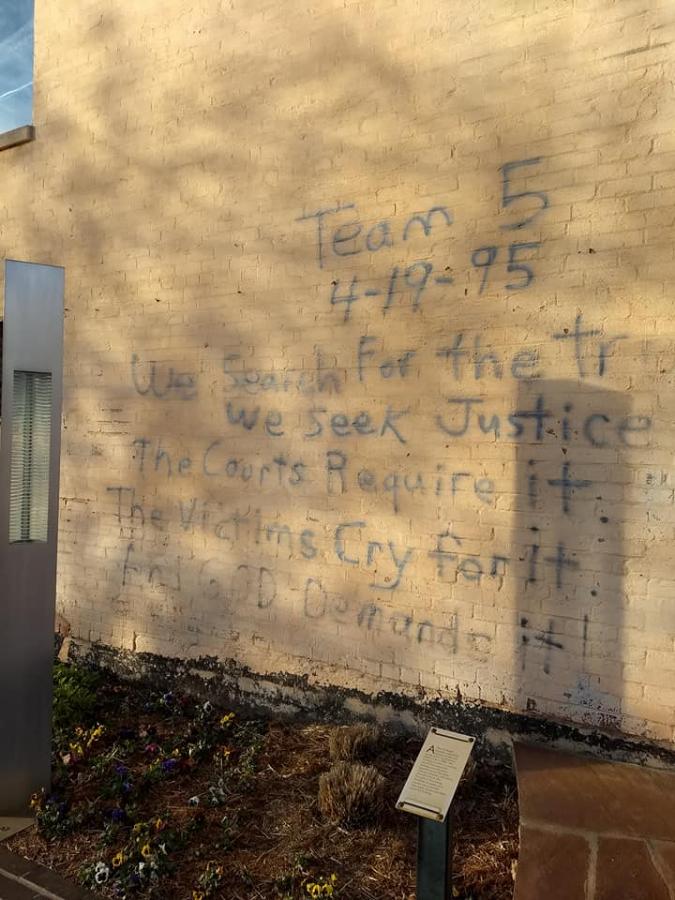 Team 5
4-19-95
We Search For the tr
We Seek Justice
The Courts Require it.
The Victims Cry for it.
And GOD Demands it!